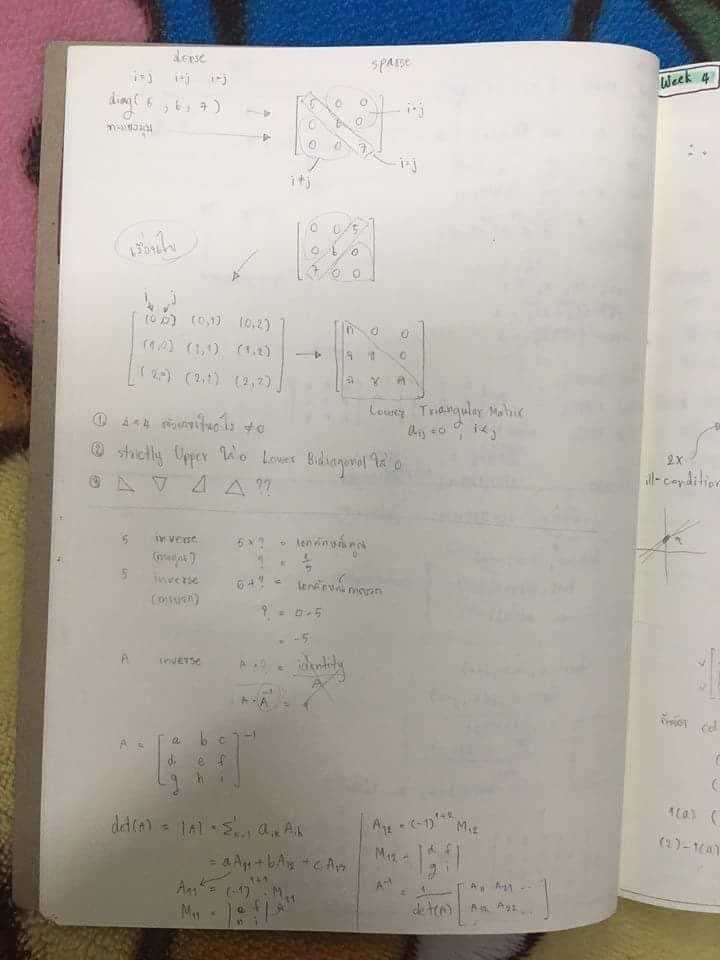 dense
sparse
i=j i≠j i≠j
diag(5, 6, 7) →
→
[5 0 0
0 6 0
0 0 7]
i≠j
i=j
i≠j
[0 0 5
0 6 0
7 0 0]
i j
[(0,0) (0,1) (0,2)
(1,0) (1,1) (1,2)
(2,0) (2,1) (2,2)]
→
Lower Triangular Matrix
aij = 0 , i < j
①
≠ 0
② strictly Upper ใส่ 0 Lower Bidiagonal ใส่ 0
③ ??
5 inverse 5 × ? = เอกลักษณ์คูณ
(การคูณ) ? = 1/5
5 inverse 5 + ? = เอกลักษณ์การบวก
(การบวก) ? = 0 - 5
= -5
A inverse A · ? = identity
A
A · A⁻¹ =
A = [a b c
d e f
g h i]⁻¹
det(A) = |A| = Σ aik Aik
= aA11 + bA12 + cA13
A11 = (-1)¹⁺¹ · M11
M11 = |e f
h i|
A12 = (-1)¹⁺² M12
M12 = |d f
g i|
A⁻¹ = 1/det(A) [A11 A21 ...
A12 A22 ...]
Week 4
∴
2x
ill-condition
col
1(a) (
(2)-1(a)